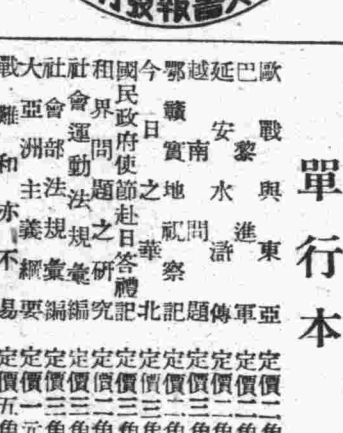 單行本
歐戰與東亞 定價二角
巴黎進軍 定價二角
延安水滸傳 定價一角
越南問題 定價三角
鄂贛實地視察記 定價二角
今日之華北 定價三角
國民政府使節赴日答禮記 定價二角
租界問題之研究 定價二角
社會運動法規彙編 定價三角
社會部法規彙編 定價三角
大亞洲主義綱要 定價一元
戰難和亦不易 定價五角